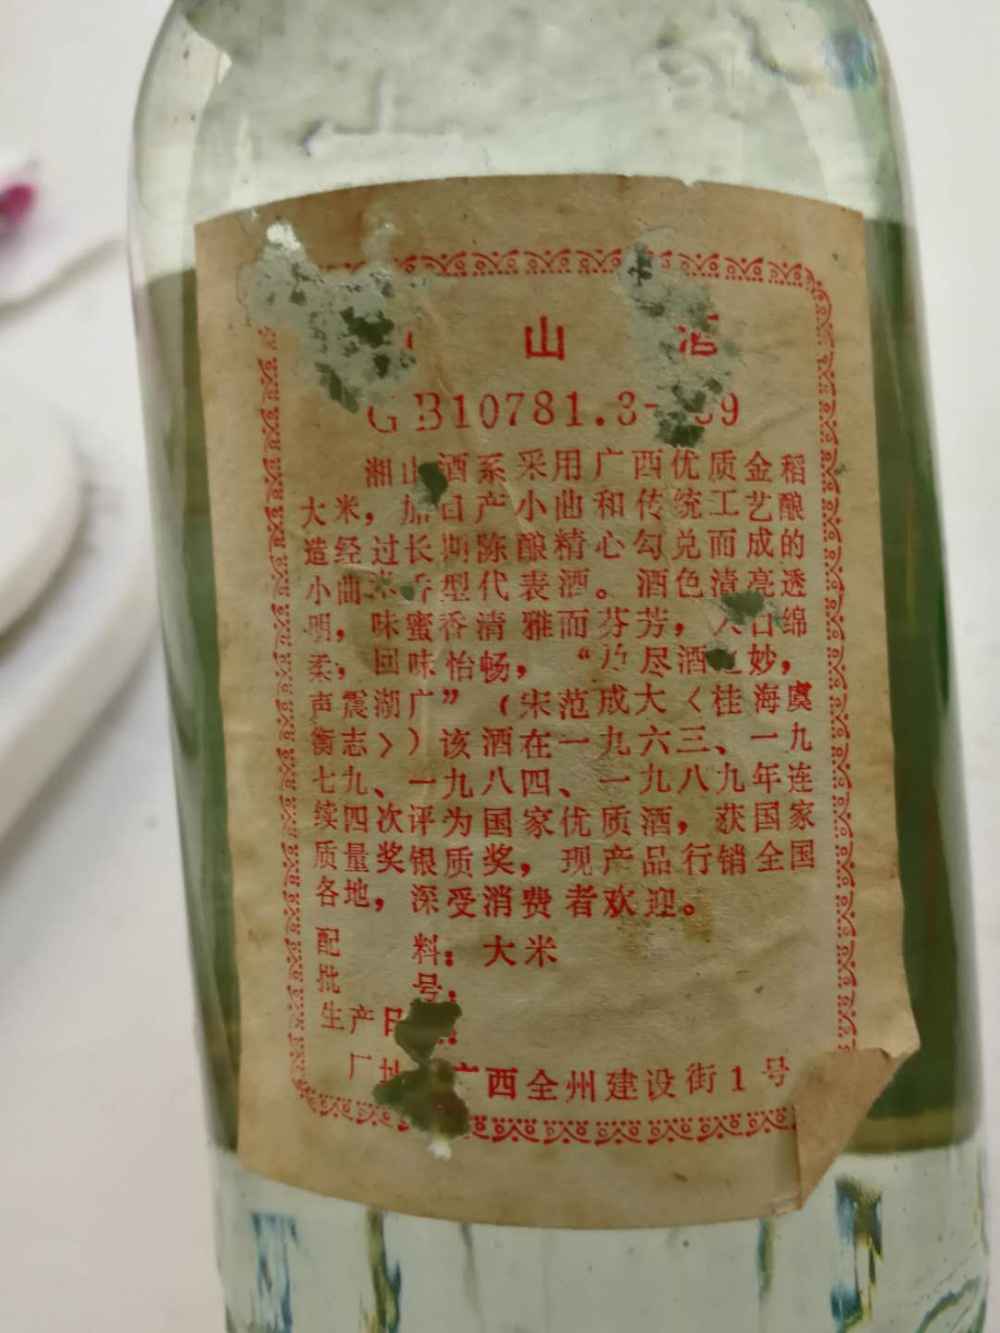 山 酒
GB10781.3- 9
湘山酒系采用广西优质金稻
大米，加自产小曲和传统工艺酿
造经过长期陈酿精心勾兑而成的
小曲米香型代表酒。酒色清亮透
明，味蜜香清雅而芬芳，入口绵
柔，回味怡畅，“乃尽酒之妙，
声震湖广”（宋范成大〈桂海虞
衡志〉）该酒在一九六三、一九
七九、一九八四、一九八九年连
续四次评为国家优质酒，获国家
质量奖银质奖，现产品行销全国
各地，深受消费者欢迎。
配 料：大米
批 号：
生产日
厂址 广西全州建设街1号